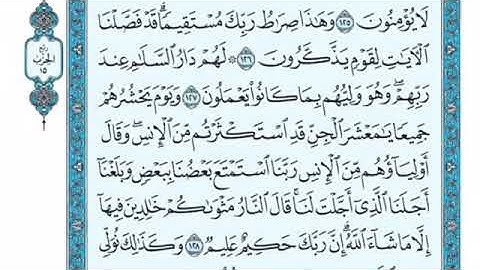 لَا يُؤْمِنُونَ ١٢٥ وَهَٰذَا صِرَٰطُ رَبِّكَ مُسْتَقِيمًا ۗ قَدْ فَصَّلْنَا
ٱلْـَٔايَٰتِ لِقَوْمٍ يَذَّكَّرُونَ ١٢٦ ۞ لَهُمْ دَارُ ٱلسَّلَٰمِ عِندَ
رَبِّهِمْ ۖ وَهُوَ وَلِيُّهُم بِمَا كَانُوا۟ يَعْمَلُونَ ١٢٧ وَيَوْمَ يَحْشُرُهُمْ
جَمِيعًا يَٰمَعْشَرَ ٱلْجِنِّ قَدِ ٱسْتَكْثَرْتُم مِّنَ ٱلْإِنسِ ۖ وَقَالَ
أَوْلِيَآؤُهُم مِّنَ ٱلْإِنسِ رَبَّنَا ٱسْتَمْتَعَ بَعْضُنَا بِبَعْضٍ وَبَلَغْنَآ
أَجَلَنَا ٱلَّذِىٓ أَجَّلْتَ لَنَا ۚ قَالَ ٱلنَّارُ مَثْوَىٰكُمْ خَٰلِدِينَ فِيهَآ
إِلَّا مَا شَآءَ ٱللَّهُ ۗ إِنَّ رَبَّكَ حَكِيمٌ عَلِيمٌ ١٢٨ وَكَذَٰلِكَ نُوَلِّى
ربع
الحزب
١٥